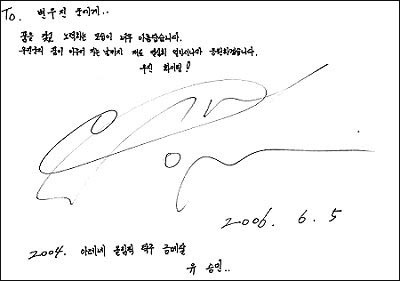 To. 변우진 군에게..
꿈을 갖고 노력하는 모습이 너무 아름답습니다.
우진군의 꿈이 이루어 지는 날까지 저도 열심히 열심히 응원하겠습니다.
우진 화이팅!
2006. 6. 5
2004. 아테네 올림픽 탁구 금메달
유승민..